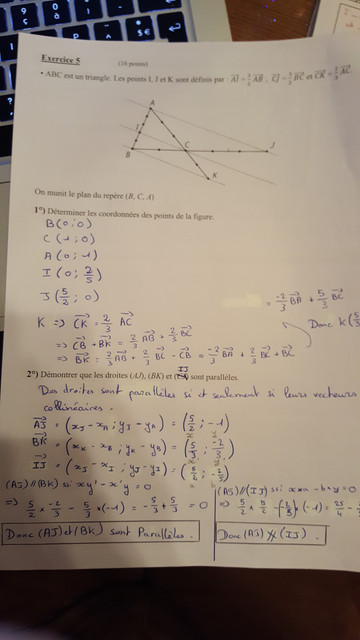 Exercice 5 (16 points)
• ABC est un triangle. Les points I, J et K sont définis par :
A
I
B
C
J
K
On munit le plan du repère (B, C, A)
1°) Déterminer les coordonnées des points de la figure.
B(0;0)
C(1;0)
A(0;1)
I(0; 2/5)
J(5/2; 0)
K => CK = 2/3 AC
=> CB + BK = 2/3 AB + 2/3 BC
=> BK = 2/3 AB + 2/3 BC - CB = -2/3 BA + 2/3 BC + BC
= -2/3 BA + 5/3 BC
Donc K(5/3
2°) Démontrer que les droites (AJ), (BK) et (IJ) sont parallèles.
Des droites sont parallèles si et seulement si leurs vecteurs
collinéaires.
AJ = (xJ - xA ; yJ - yA) = (5/2 ; -1)
BK = (xK - xB ; yK - yB) = (5/3 ; -2/3)
IJ = (xJ - xI ; yJ - yI) = (5/2 ; -2/5)
(AJ)//(BK) ssi xy' - x'y = 0
=> 5/2 × -2/3 - 5/3 × (-1) = -5/3 + 5/3 = 0
Donc (AJ) et (BK) sont Parallèles.
(AJ)//(IJ) ssi
Donc (AJ) (IJ).